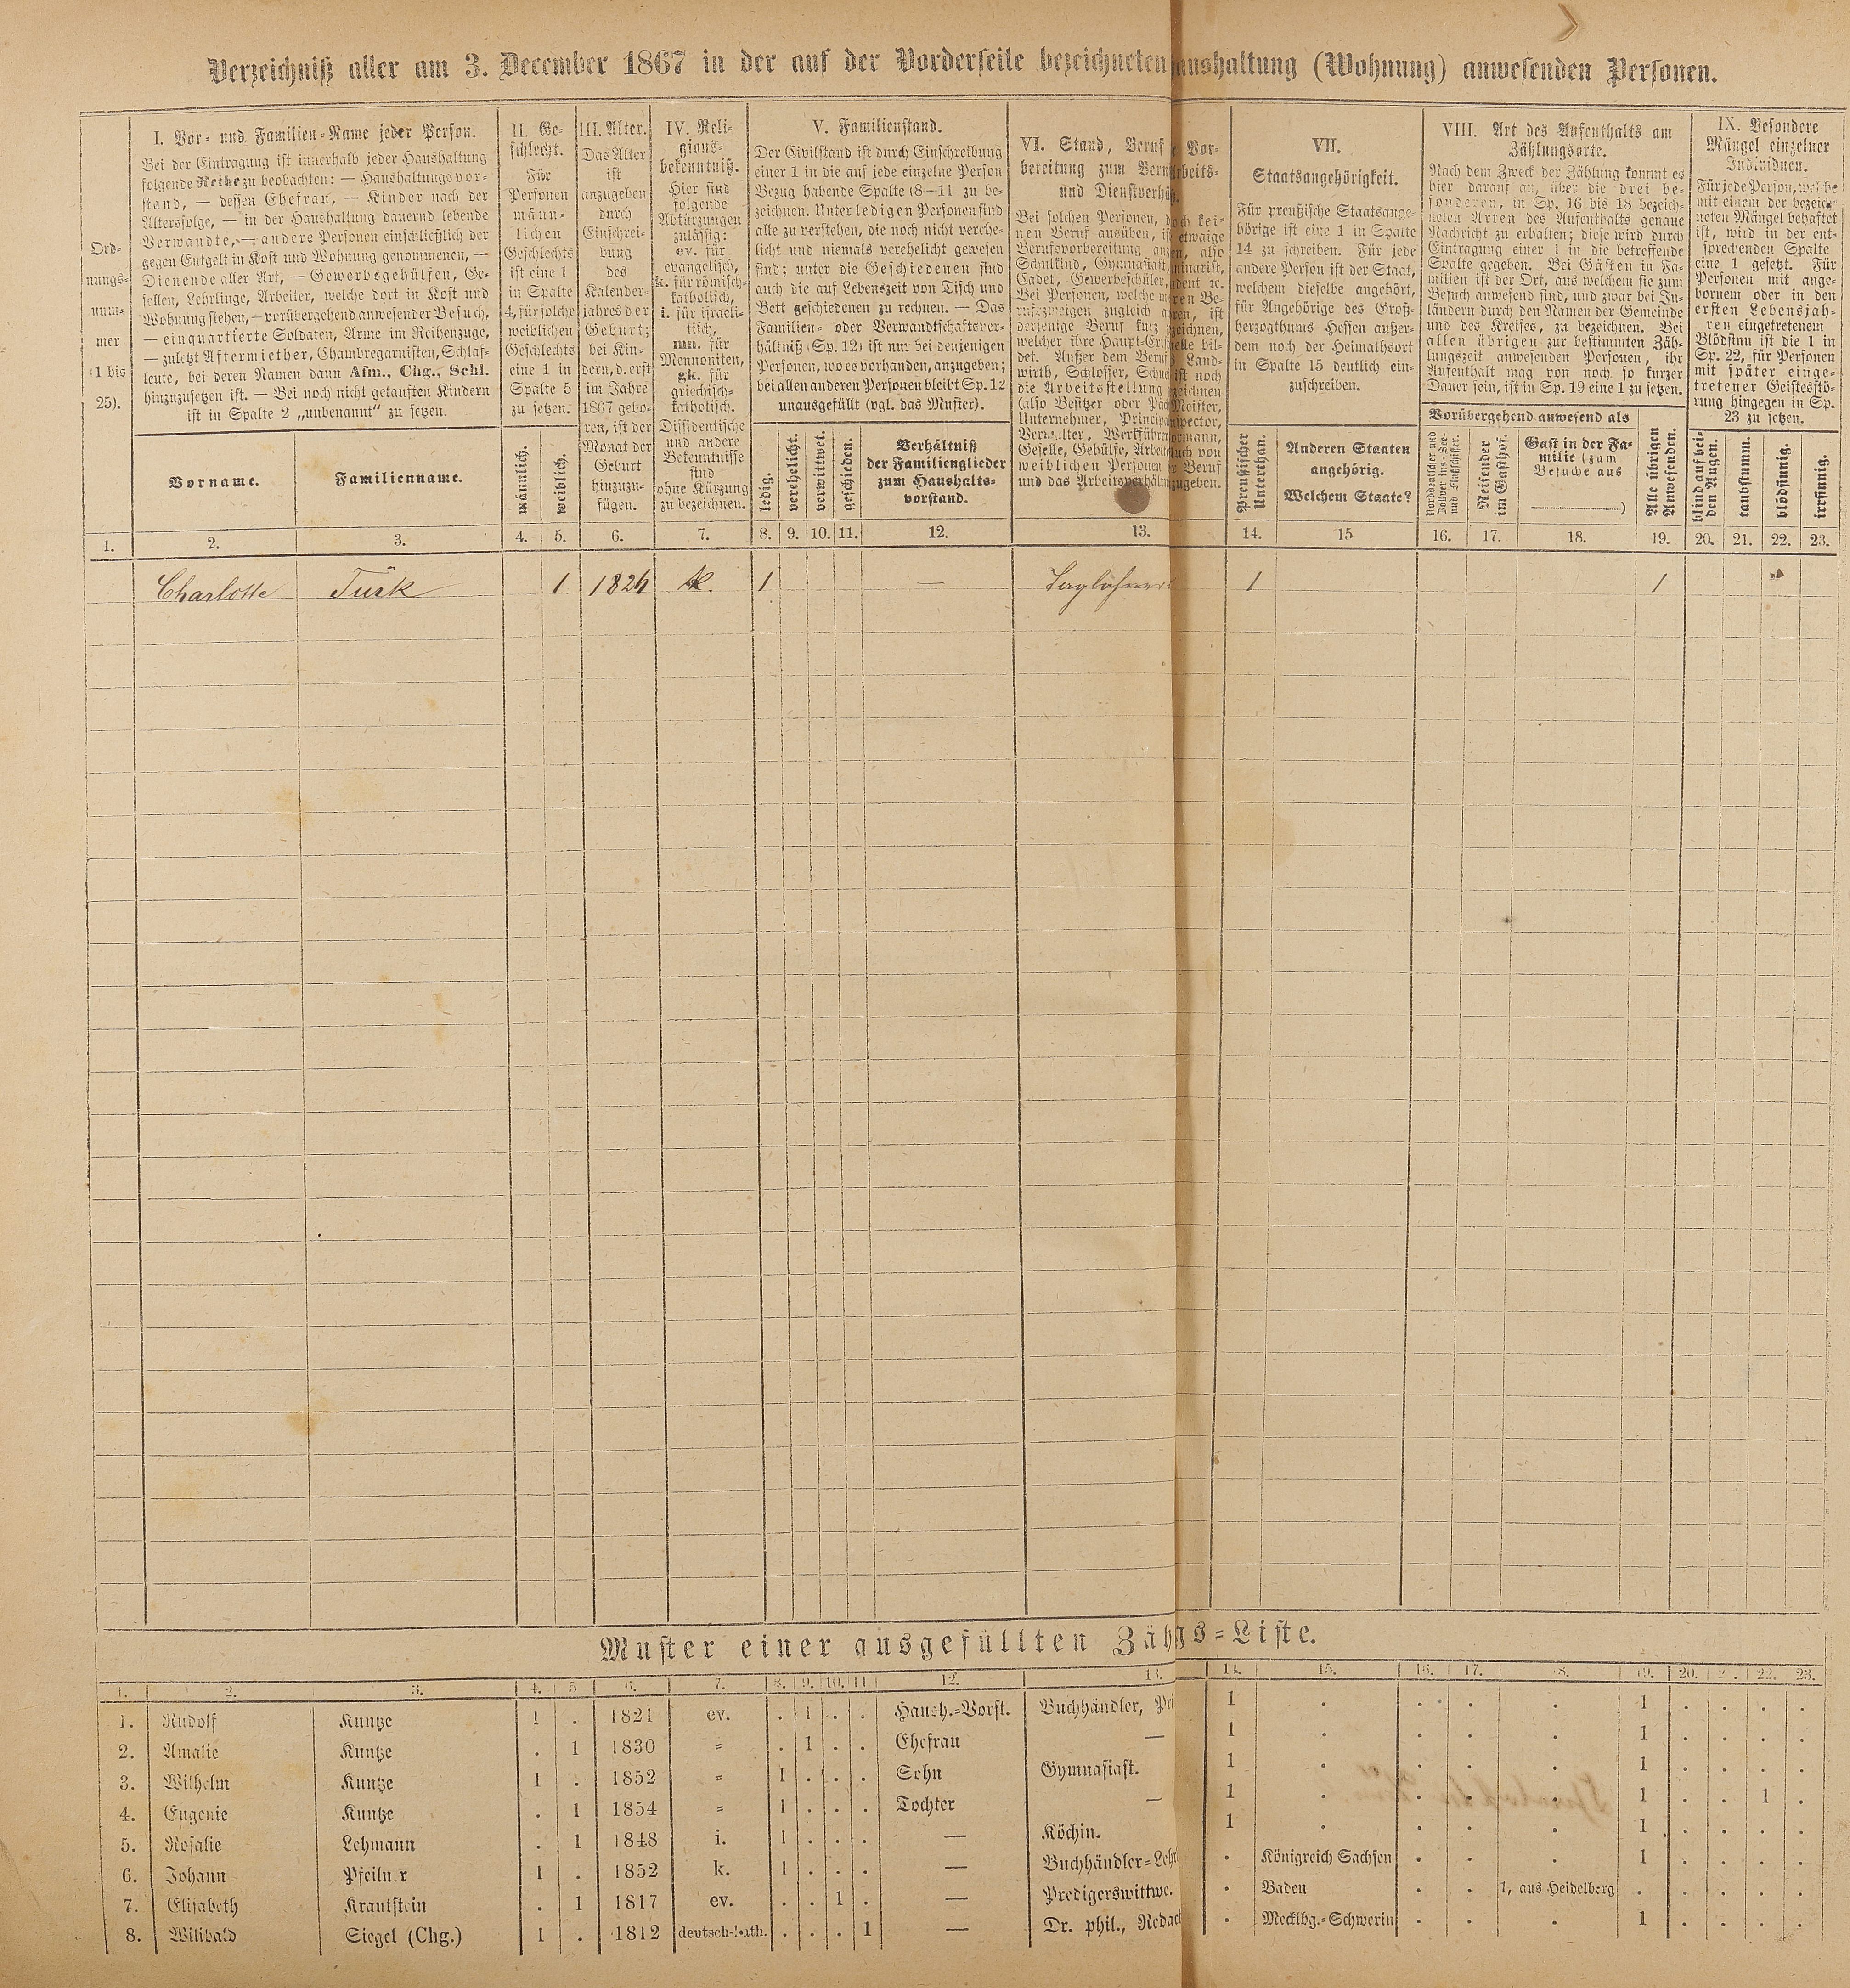 Verzeichniß aller am 3. December 1867 in der auf der Vorderseite bezeichneten aushaltung (Wohnung) anwesenden Personen.
Ord-
nungs-
num-
mer
(1 bis
25).
I. Vor- und Familien-Name jeder Person.
Bei der Eintragung ist innerhalb jeder Haushaltung
folgende Reihe zu beobachten: — Haushaltungsvor-
stand, — dessen Ehefrau, — Kinder nach der
Altersfolge, — in der Haushaltung dauernd lebende
Verwandte, — andere Personen einschließlich der
gegen Entgelt in Kost und Wohnung genommenen, —
Dienende aller Art, — Gewerbsgehülfen, Ge-
sellen, Lehrlinge, Arbeiter, welche dort in Kost und
Wohnung stehen, — vorübergehend anwesender Besuch,
— einquartierte Soldaten, Arme im Reihenzuge,
— zuletzt Aftermiether, Chambregarnisten, Schlaf-
leute, bei deren Namen dann Afm., Chg., Schl.
hinzuzusetzen ist. — Bei noch nicht getauften Kindern
ist in Spalte 2 „unbenannt“ zu setzen.
Vorname.
Familienname.
II. Ge-
schlecht.
Für
Personen
männ-
lichen
Geschlechts
ist eine 1
in Spalte
4, für solche
weiblichen
Geschlechts
eine 1 in
Spalte 5
zu setzen.
männlich.
weiblich.
III. Alter.
Das Alter
ist
anzugeben
durch
Einschrei-
bung
des
Kalender-
jahres der
Geburt;
bei Kin-
dern, d. erst
im Jahre
1867 gebo-
ren, ist der
Monat der
Geburt
hinzuzu-
fügen.
IV. Reli-
gions-
bekenntniß.
Hier sind
folgende
Abkürzungen
zulässig:
ev. für
evangelisch,
k. für römisch-
katholisch,
i. für israeli-
tisch,
mn. für
Mennoniten,
gk. für
griechisch-
katholisch.
Dissidentische
und andere
Bekenntnisse
sind
ohne Kürzung
zu bezeichnen.
V. Familienstand.
Der Civilstand ist durch Einschreibung
einer 1 in die auf jede einzelne Person
Bezug habende Spalte (8—11 zu be-
zeichnen. Unter ledigen Personen sind
alle zu verstehen, die noch nicht verehe-
licht und niemals verehelicht gewesen
sind; unter die Geschiedenen sind
auch die auf Lebenszeit von Tisch und
Bett geschiedenen zu rechnen. — Das
Familien- oder Verwandtschaftsver-
hältniß (Sp. 12) ist nur bei denjenigen
Personen, wo es vorhanden, anzugeben;
bei allen anderen Personen bleibt Sp. 12
unausgefüllt (vgl. das Muster).
ledig.
verehelicht.
verwittwet.
geschieden.
Verhältniß
der Familienglieder
zum Haushalts-
vorstand.
VI. Stand, Beruf Vor-
bereitung zum Beruf Arbeits-
und Dienstverhä
Bei solchen Personen, doch kei-
nen Beruf ausüben, ist etwaige
Berufsvorbereitung also
Schulkind, Gymnasiast,
Cadet, Gewerbeschüler, ꝛc.
Bei Personen, welche Be-
rufszweigen zugleich ist
derjenige Beruf kurz
welcher ihre Haupt- bil-
det. Außer dem Beruf Land-
wirth, Schlosser, ist noch
die Arbeitsstellung
(also Besitzer oder Meister,
Unternehmer, Principal
Verwalter, Werkführer
Geselle, Gehülfe, auch von
weiblichen Personen Beruf
und das Arbeitsverhältn
VII.
Staatsangehörigkeit.
Für preußische Staatsange-
hörige ist eine 1 in Spalte
14 zu schreiben. Für jede
andere Person ist der Staat,
welchem dieselbe angehört,
für Angehörige des Groß-
herzogthums Hessen außer-
dem noch der Heimathsort
in Spalte 15 deutlich ein-
zuschreiben.
Preußischer
Unterthan.
Anderen Staaten
angehörig.
Welchem Staate?
VIII. Art des Aufenthalts am
Zählungsorte.
Nach dem Zweck der Zählung kommt es
hier darauf an, über die drei be-
sonderen, in Sp. 16 bis 18 bezeich-
neten Arten des Aufenthalts genaue
Nachricht zu erhalten; diese wird durch
Eintragung einer 1 in die betreffende
Spalte gegeben. Bei Gästen in Fa-
milien ist der Ort, aus welchem sie zum
Besuch anwesend sind, und zwar bei In-
ländern durch den Namen der Gemeinde
und des Kreises, zu bezeichnen. Bei
allen übrigen zur bestimmten Zäh-
lungszeit anwesenden Personen, ihr
Aufenthalt mag von noch so kurzer
Dauer sein, ist in Sp. 19 eine 1 zu setzen.
Vorübergehend anwesend als
Norddeutscher und
Zollvereins-See-
und Flußschiffer.
Reisender
im Gasthof.
Gast in der Fa-
milie (zum
Besuche aus
)
Alle übrigen
Anwesenden.
IX. Besondere
Mängel einzelner
Individuen.
Für jede Person, welche
mit einem der bezeich-
neten Mängel behaftet
ist, wird in der ent-
sprechenden Spalte
eine 1 gesetzt. Für
Personen mit ange-
bornem oder in den
ersten Lebensjah-
ren eingetretenem
Blödsinn ist die 1 in
Sp. 22, für Personen
mit später einge-
tretener Geistesstö-
rung hingegen in Sp.
23 zu setzen.
blind auf bei-
den Augen.
taubstumm.
blödsinnig.
irrsinnig.
1. 2. 3. 4. 5. 6. 7. 8. 9. 10. 11. 12. 13. 14. 15 16. 17. 18. 19. 20. 21. 22. 23.
Charlotte Türk 1 1826 k. 1 — Taglöhner 1 1
Muster einer ausgefüllten Zäh gs-Liste.
1. 2. 3. 4. 5 6. 7. 8. 9. 10. 11 12. 13. 14. 15. 16. 17. 18. 19. 20. 21. 22. 23.
1. Rudolf Kuntze 1 . 1821 ev. . 1 . . Haush.-Vorst. Buchhändler, Pri 1 . . . . 1 . . . .
2. Amalie Kuntze . 1 1830 " . 1 . . Ehefrau — 1 . . . . 1 . . . .
3. Wilhelm Kuntze 1 . 1852 " 1 . . . Sohn Gymnasiast. 1 . . . . 1 . . . .
4. Eugenie Kuntze . 1 1854 " 1 . . . Tochter — 1 . . . . 1 . . 1 .
5. Rosalie Lehmann . 1 1848 i. 1 . . . — Köchin. 1 . . . . 1 . . . .
6. Johann Pfeiln.r 1 . 1852 k. 1 . . . — Buchhändler-Lehr . Königreich Sachsen . . . 1 . . . .
7. Elisabeth Krautstein . 1 1817 ev. . . 1 . — Predigerswittwe. . Baden . . 1, aus Heidelberg . . . . .
8. Wilibald Siegel (Chg.) 1 . 1812 deutsch-kath. . . . 1 — Dr. phil., Redact . Mecklbg.-Schwerin . . . 1 . . . .